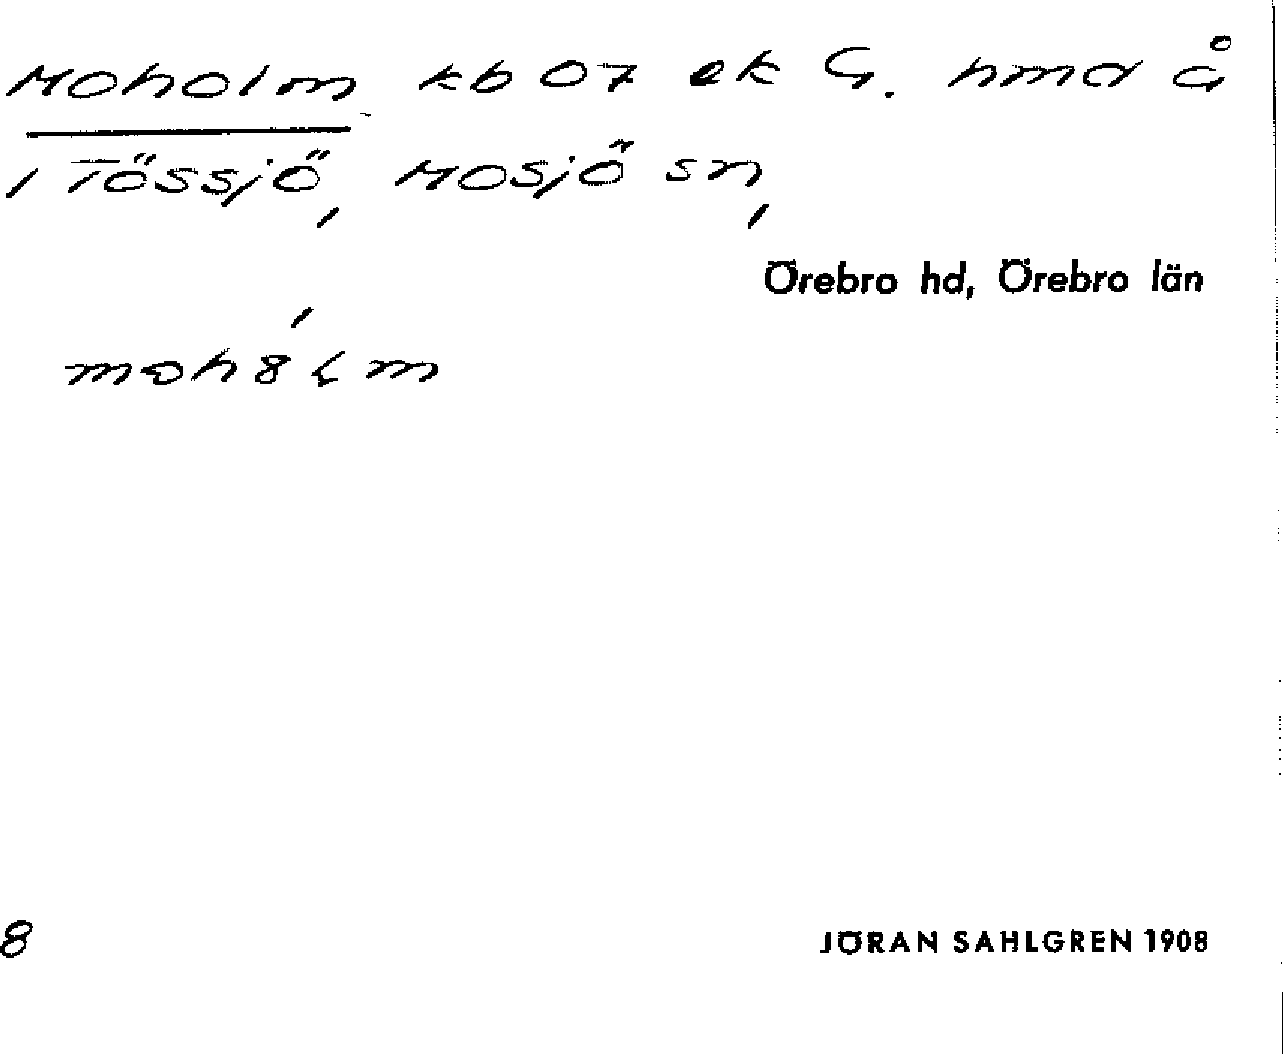 Moholm kb 07 ek G. hmd å
i Tössjö, Mosjö sn,
Örebro hd, Örebro län
8
JÖRAN SAHLGREN 1908